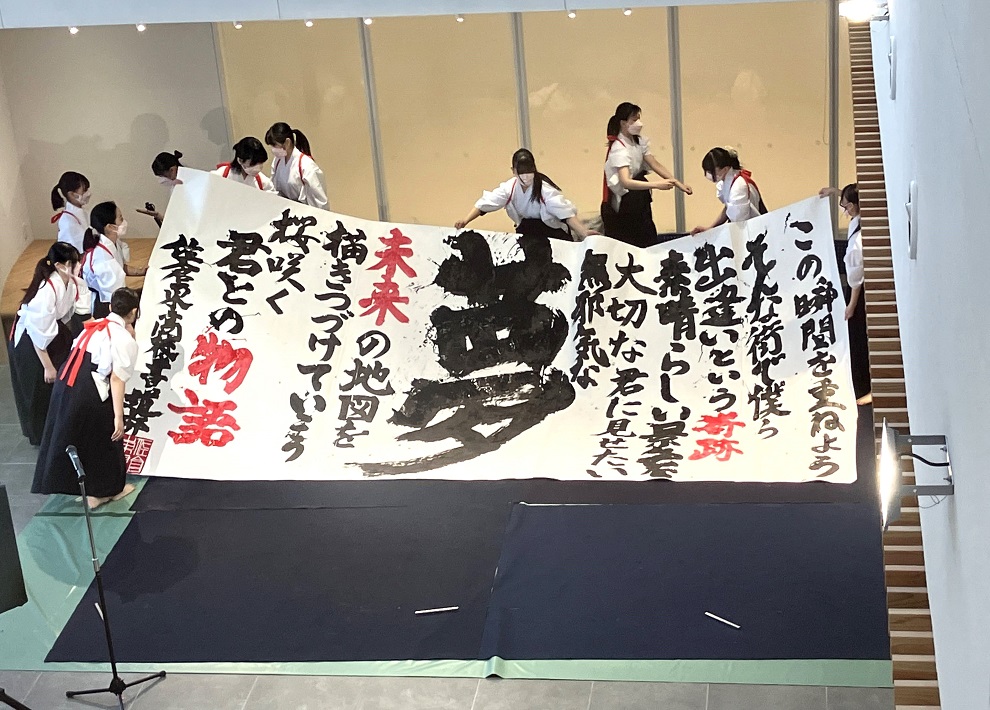 この瞬間を重ねよう
そんな街で僕ら
出逢いという奇跡
素晴らしい景色
大切な君に見せたい
無邪気な
夢
未来の地図を
描きつづけていこう
桜咲く
君との物語